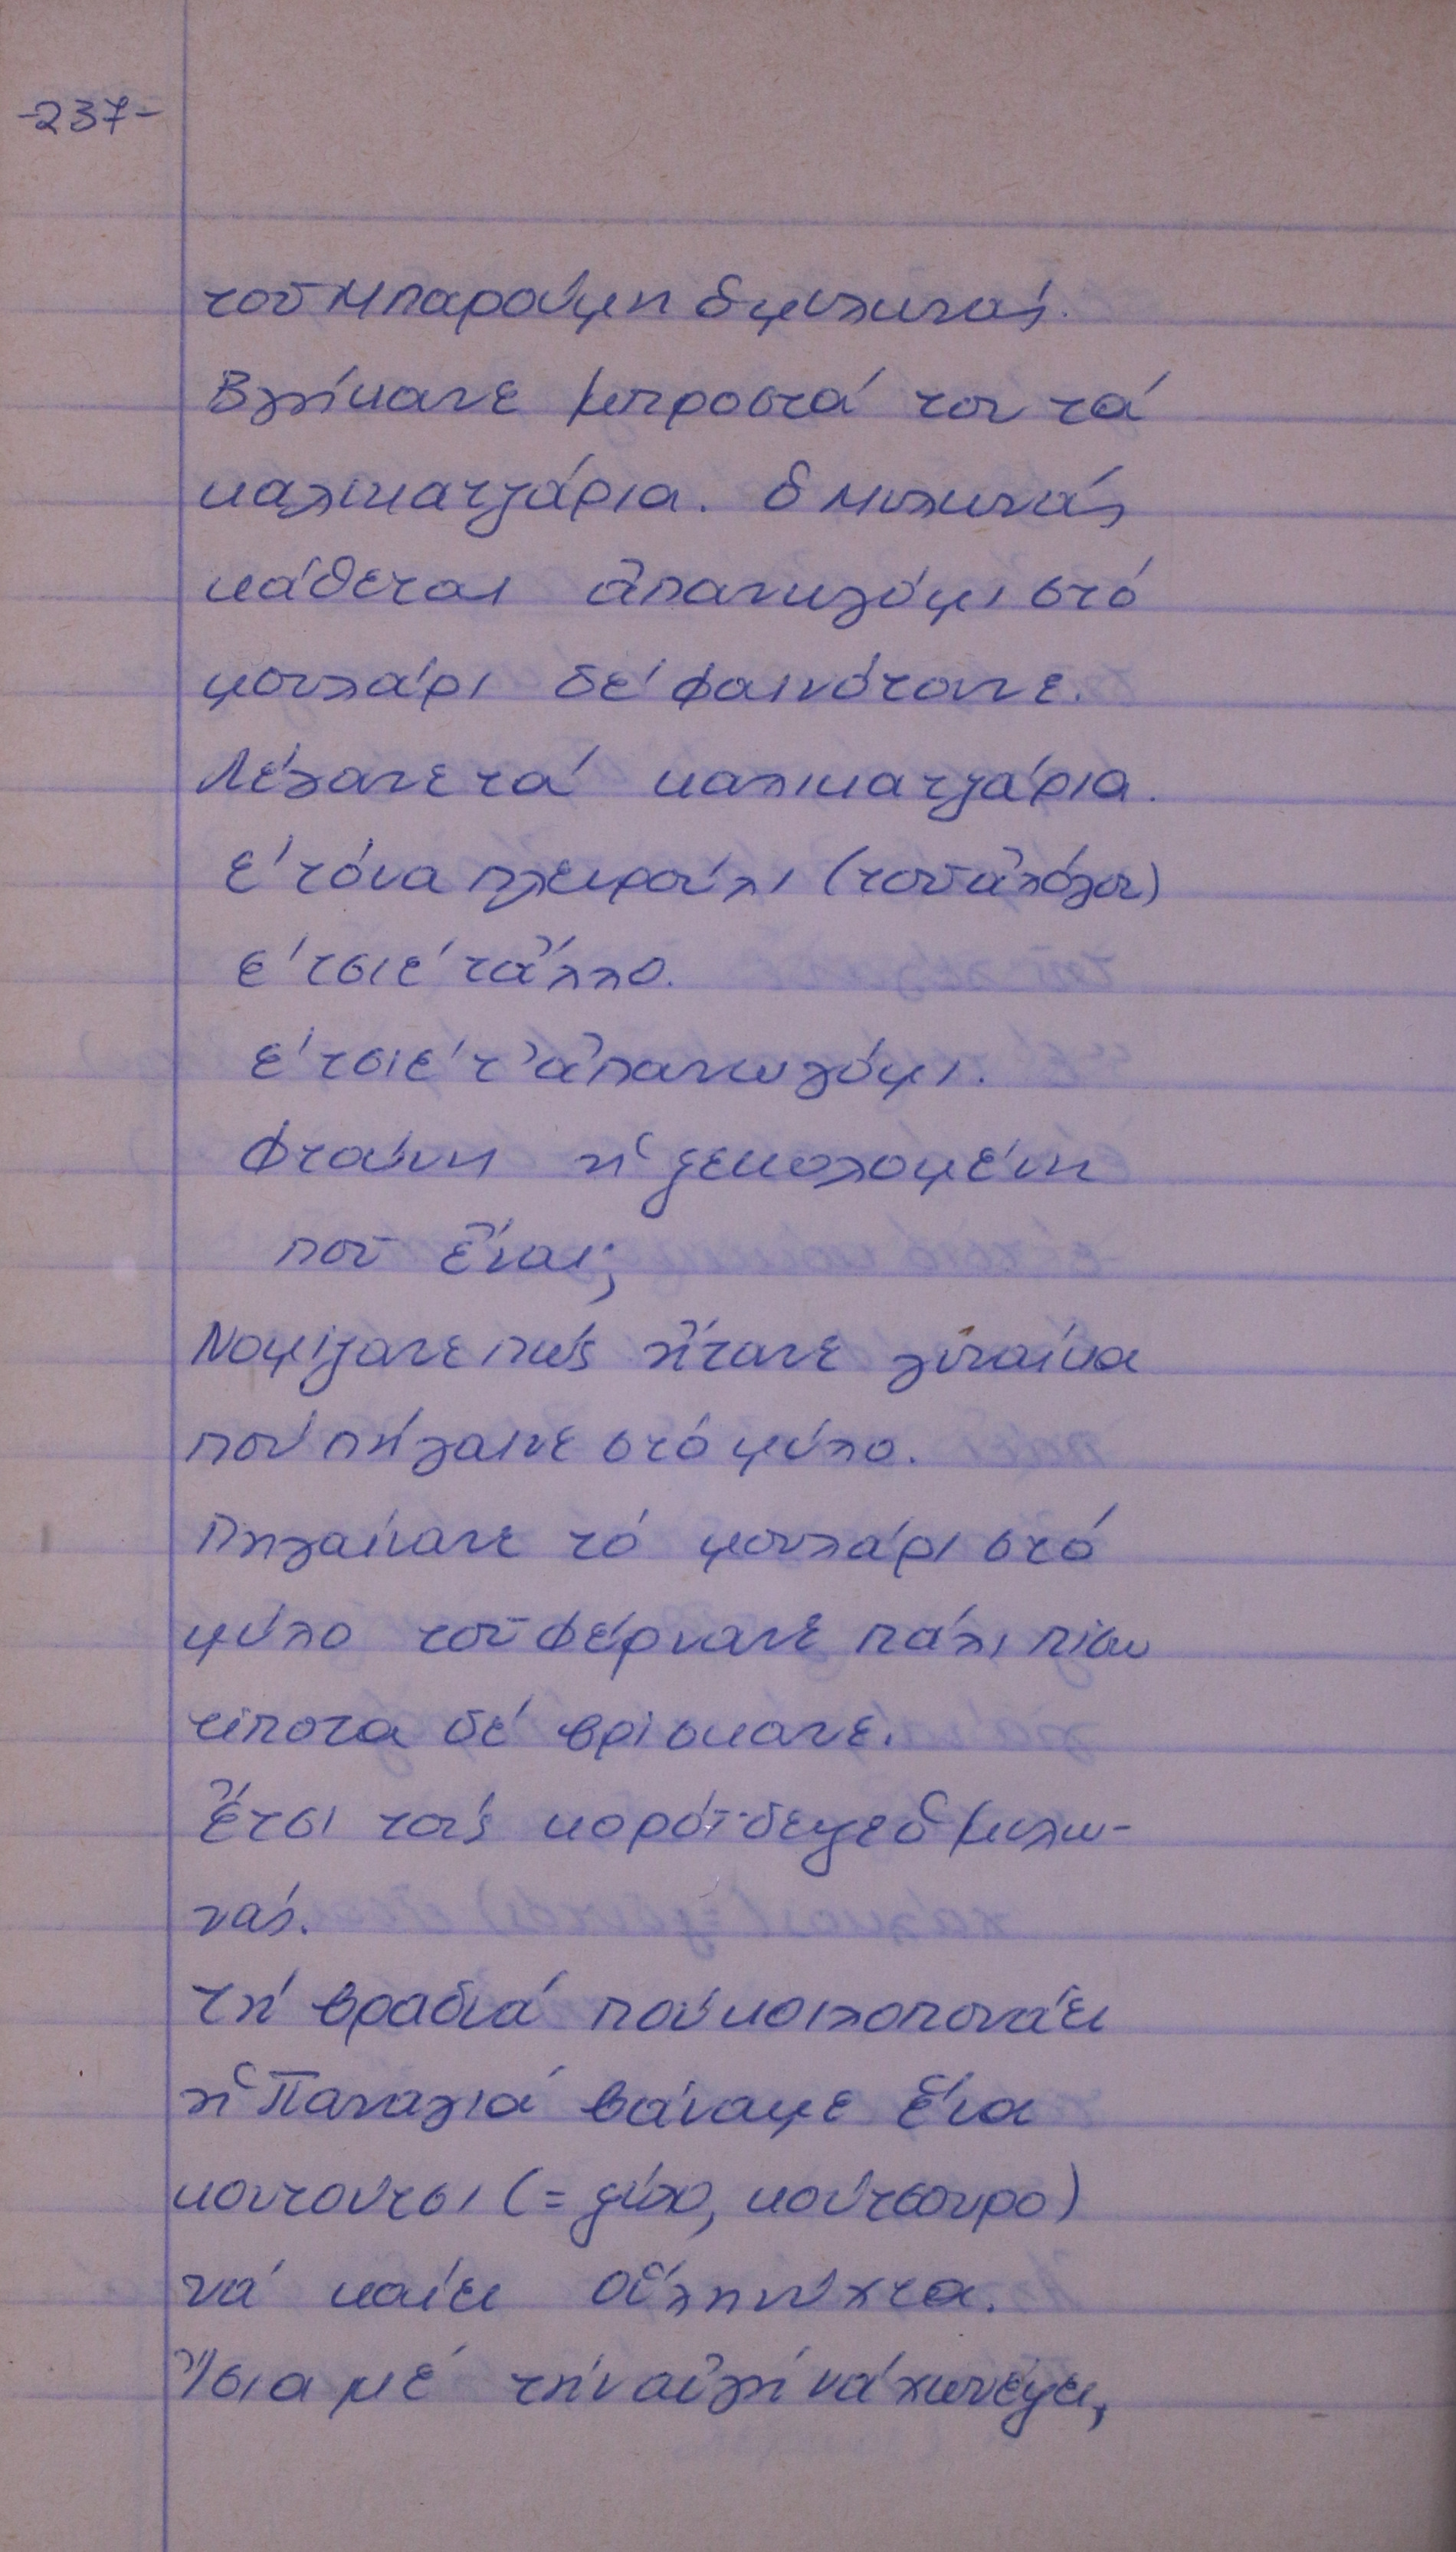 -237-
τοῦ Μπαρούμη ὁ μυλωνάς.
Βγήκανε μπροστά του τά
καλικατζάρια. ὁ Μυλωνάς
κάθεται ἀπανωγόμι στό
μουλάρι δέ φαινότανε.
Λέγανε τά καλικατζάρια.
ε' τόνα πλευρούλι (τοῦ ἀλόγου)
ε' τσι ε' τἄλλο.
ε' τσι ε' τ' ἀπανωγόμι.
Φταίνη ἡ ξεκωλομένη
ποῦ εἶναι;
Νομίζανε πώς ἤτανε γυναίκα
πού πήγαινε στό μύλο.
Πηγαίνανε τό μουλάρι στό
μύλο τοῦ φέρνανε πάλι πίσω
τίποτα δέ βρίσκανε.
Ἔτσι τούς κορόϊδεψε ὁ μυλω-
νάς.
τή βραδιά πού κοιλοπονάει
ἡ Παναγιά βάναμε ἕνα
κουτούτσι (= ξύλο, κούτσουρο)
νά καίει ὅλη νύχτα.
Ἴσια μέ τήν αὐγή νά χωνέψει,